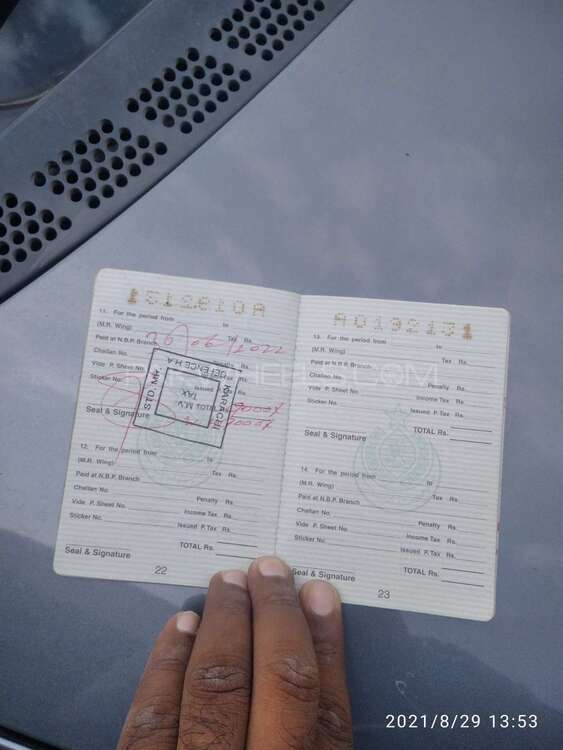 A0192131
11. For the period from to
(M.R. Wing) Tax Rs.
Paid at N.B.P. Branch 2022
Challan No.
Vide P. Sheet No. Rs.
Sticker No. Issued
TOTAL
Seal & Signature
STD. MV
DEFENCE H A
KARACHI
M.V.
TAX
12. For the period from to
(M.R. Wing) Tax Rs.
Paid at N.B.P. Branch
Challan No. Penalty Rs.
Vide P. Sheet No. Income Tax Rs.
Sticker No. Issued P.Tax Rs.
TOTAL Rs.
Seal & Signature
22
A0192131
13. For the period from to
(M.R. Wing) Tax Rs.
Paid at N.B.P. Branch
Challan No. Penalty Rs.
Vide P. Sheet No. Income Tax Rs.
Sticker No. Issued P.Tax Rs.
TOTAL Rs.
Seal & Signature
14. For the period from to
(M.R. Wing) Tax Rs.
Paid at N.B.P. Branch
Challan No. Penalty Rs.
Vide P. Sheet No. Income Tax Rs.
Sticker No. Issued P.Tax Rs.
TOTAL Rs.
Seal & Signature
23
2021/8/29 13:53